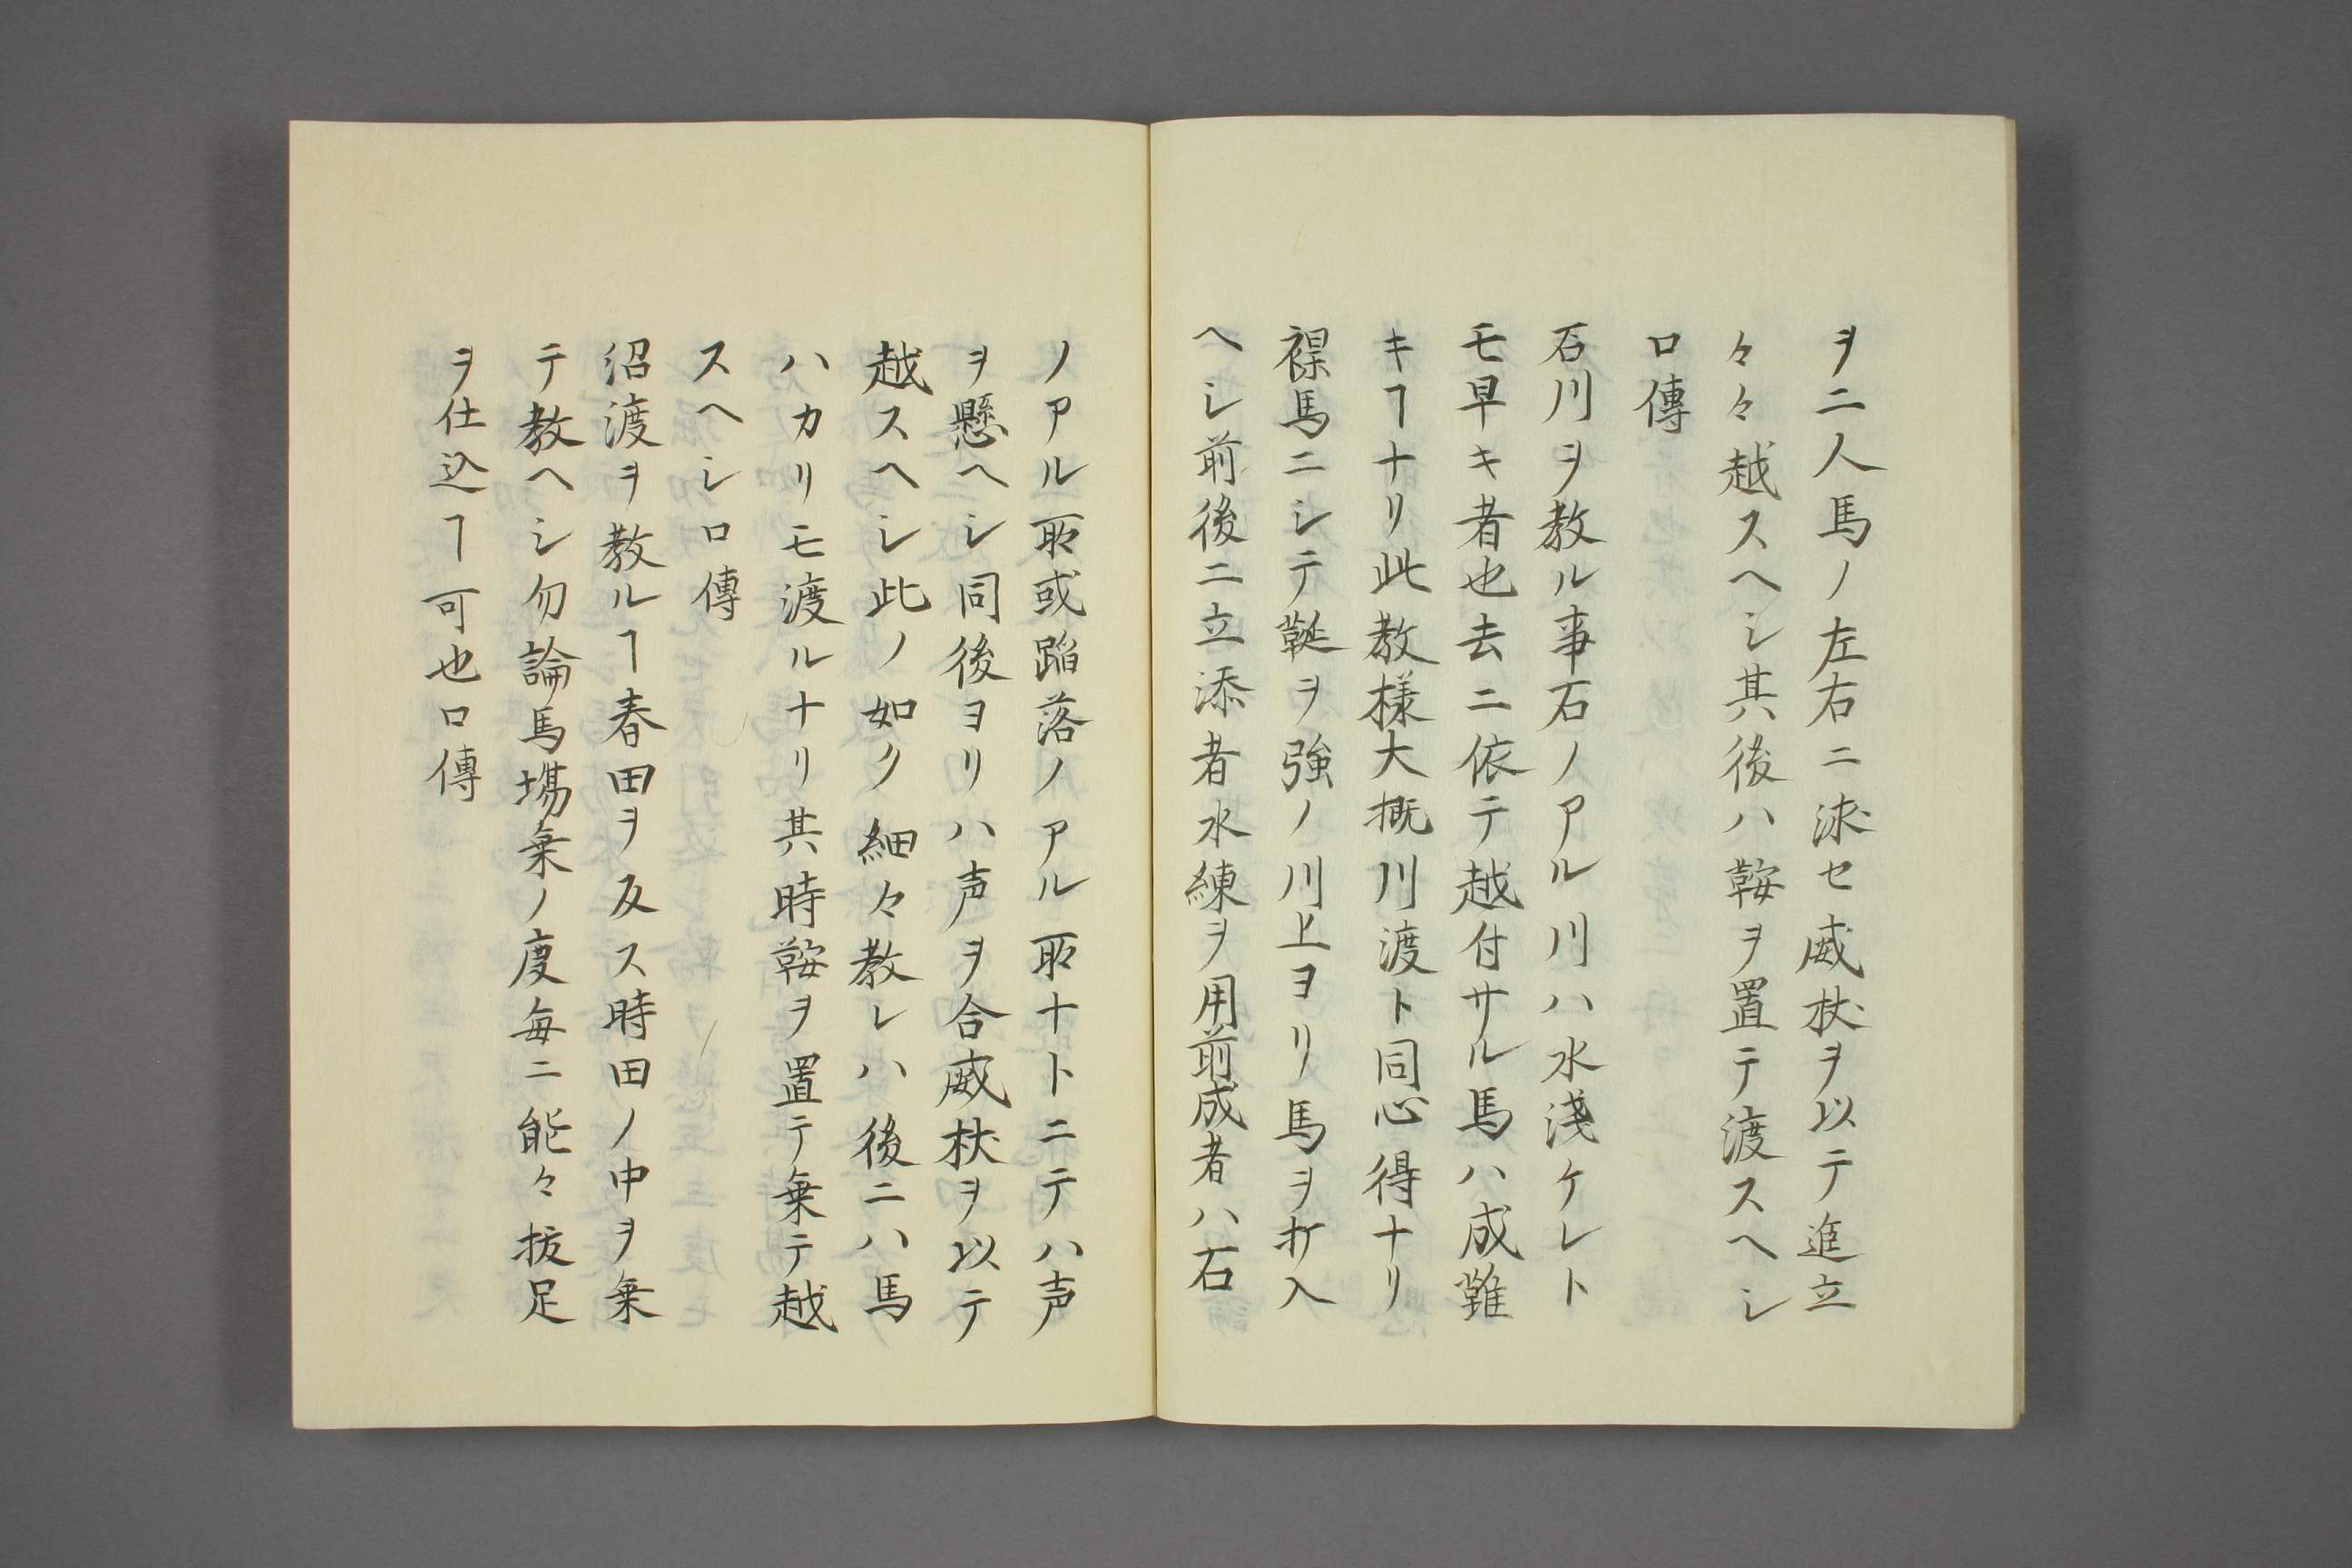 ヲ二人馬ノ左右ニ泳セ威杖ヲ以テ進立
々々越スヘシ其後ハ鞍ヲ置テ渡スヘシ
口傳
石川ヲ教ル事石ノアル川ハ水淺ケレト
モ早キ者也去ニ依テ越付サル馬ハ成難
キヿナリ此教様大概川渡ト同心得ナリ
裸馬ニシテ鞚ヲ強ノ川上ヨリ馬ヲ打入
ヘシ前後ニ立添者水練ヲ用前成者ハ石
ノアル所或蹈落ノアル所ナトニテハ声
ヲ懸ヘシ同後ヨリハ声ヲ合威杖ヲ以テ
越スヘシ此ノ如ク細々教レハ後ニハ馬
ハカリモ渡ルナリ其時鞍ヲ置テ乗テ越
スヘシ口傳
沼渡ヲ教ルヿ春田ヲ反ス時田ノ中ヲ乗
テ教ヘシ勿論馬場乗ノ度毎ニ能々抜足
ヲ仕込ヿ可也口傳